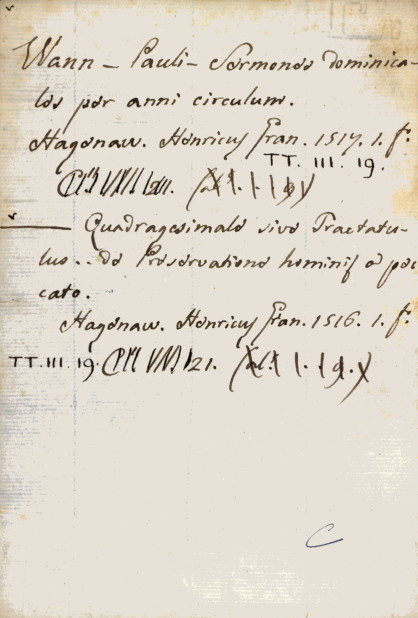 Wann – Pauli – Sermones dominica-
les per anni circulum.
Hagenaw. Henricus Gran. 1517. 1. f.
TT. III. 19.
——— Quadragesimale sive Tractatu-
lus .. de Preservatione hominis a pec
cato.
Hagenaw. Henricus Gran. 1516. 1. f.
TT. III. 19. 21.
C